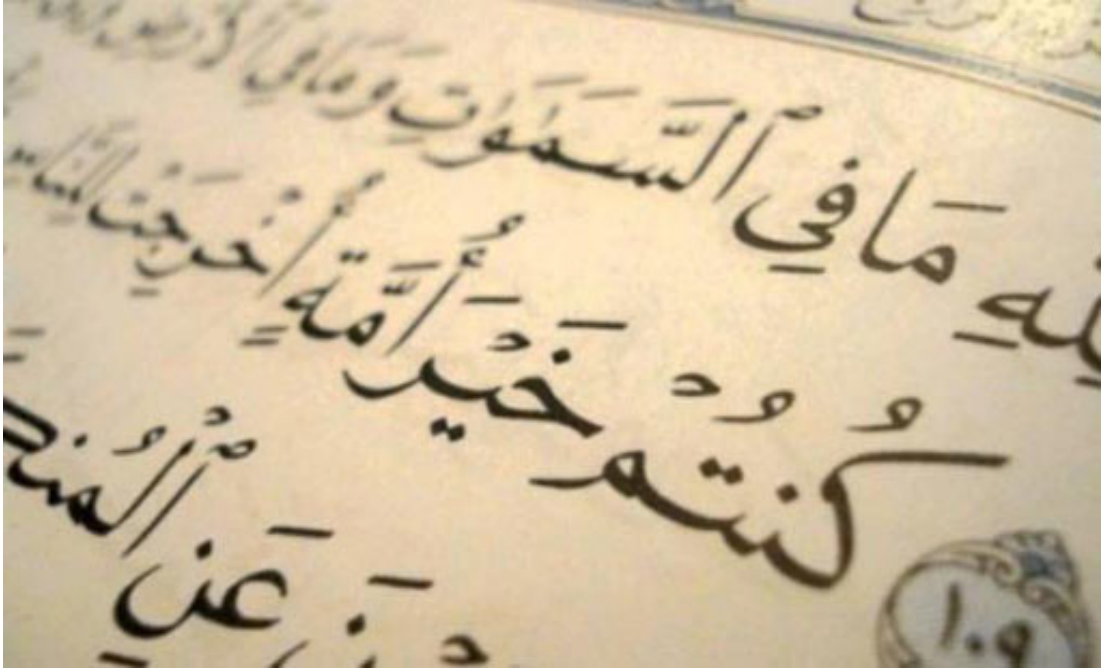 لِلَّهِ مَا فِي ٱلسَّمَٰوَٰتِ وَمَا فِي ٱلْأَرْضِ
١٠٩ كُنْتُمْ خَيْرَ أُمَّةٍ أُخْرِجَتْ لِلنَّاسِ
عَنِ ٱلْمُنْكَرِ